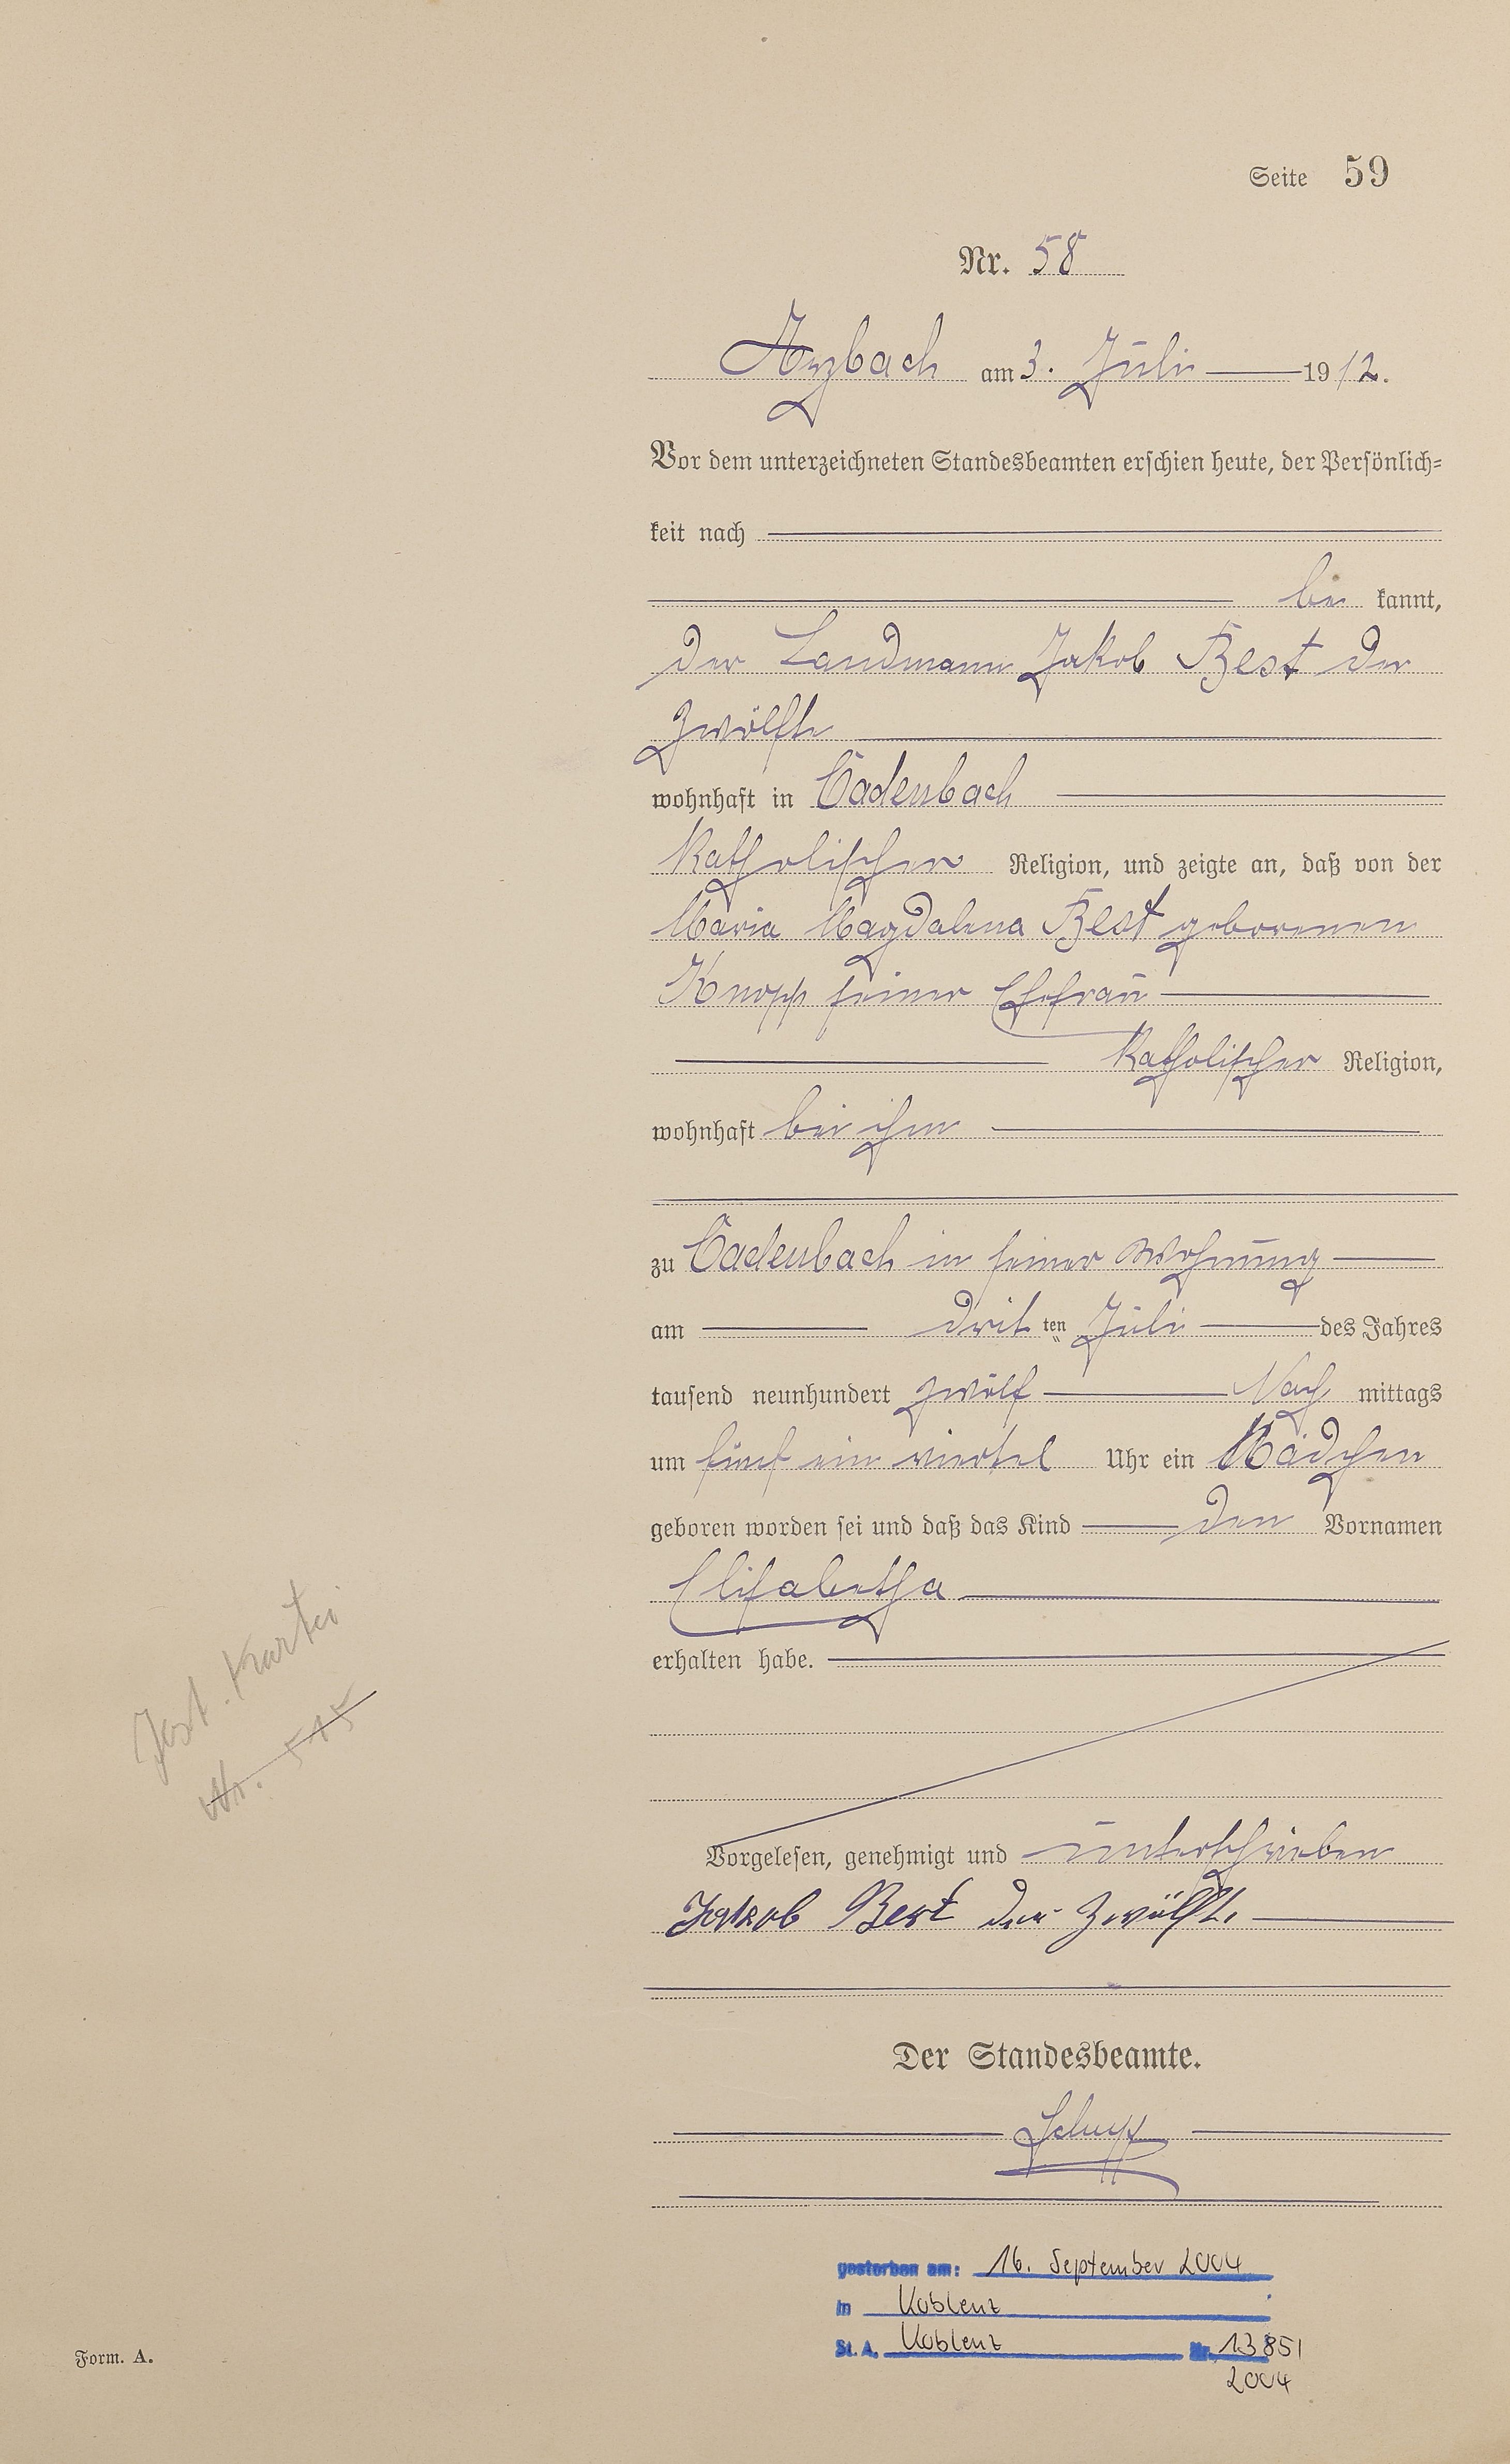 Seite 59
Nr. 58
Arzbach am 3. Juli 1912.
Vor dem unterzeichneten Standesbeamten erschien heute, der Persönlich=
keit nach
be kannt,
der Landmann Jakob Best der
zwölfte
wohnhaft in Cadenbach
katholischer Religion, und zeigte an, daß von der
Maria Magdalena Best geborenen
Knopp seiner Ehefrau
katholischer Religion,
wohnhaft bei ihm
zu Cadenbach in seiner Wohnung
am drit ten Juli des Jahres
tausend neunhundert zwölf Nach mittags
um fünf ein viertel Uhr ein Mädchen
geboren worden sei und daß das Kind den Vornamen
Elisabetha
erhalten habe.
Kartei
Nr. 515
Vorgelesen, genehmigt und unterschrieben
Jakob Best der Zwölfte
Der Standesbeamte.
Schupp
gestorben am: 16. September 2004
in Koblenz
St. A. Koblenz Nr. 13851
2004
Form. A.